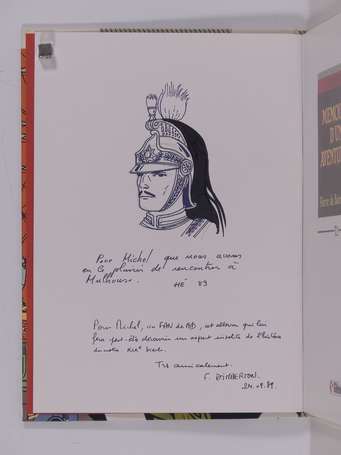 Pour Michel que nous avons
eu le plaisir de rencontrer à
Mulhouse.
HÉ 89
Pour Michel, un FAN de BD, cet album qui lui
fera peut-être découvrir un aspect insolite de l'histoire
du XIXe siècle.
Très amicalement.
F.
24.09.89.
MEMOI
D'UN
AVENTU
Pierre de